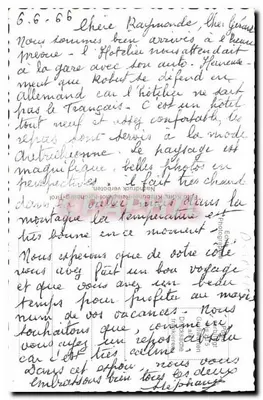 6-6-66
Chère Raymonde, Cher Gérard
Nous sommes bien arrivés à l'heure
prévue - l'Hôtelier nous attendait
à la gare avec son auto. Heureuse-
ment que Robert se défend en
Allemand car l'hôtelier ne sait
pas le Français - C'est un hôtel
tout neuf et très confortable, les
repas sont servis à la mode
Autrichienne - Le paysage est
magnifique, belles photos en
perspectives - il fait très chaud
dans dans la
montagne la température est
très bonne en ce moment -
Nous espérons que de votre côté
vous avez fait un bon voyage
et que vous avez un beau
temps pour profiter au maxi
mum de vos vacances - Nous
souhaitons que, comme
vous ayez un repos absolu
car c'est très calme
Dans cet espoir, nous vous
embrassons bien tous les deux
Stéphane